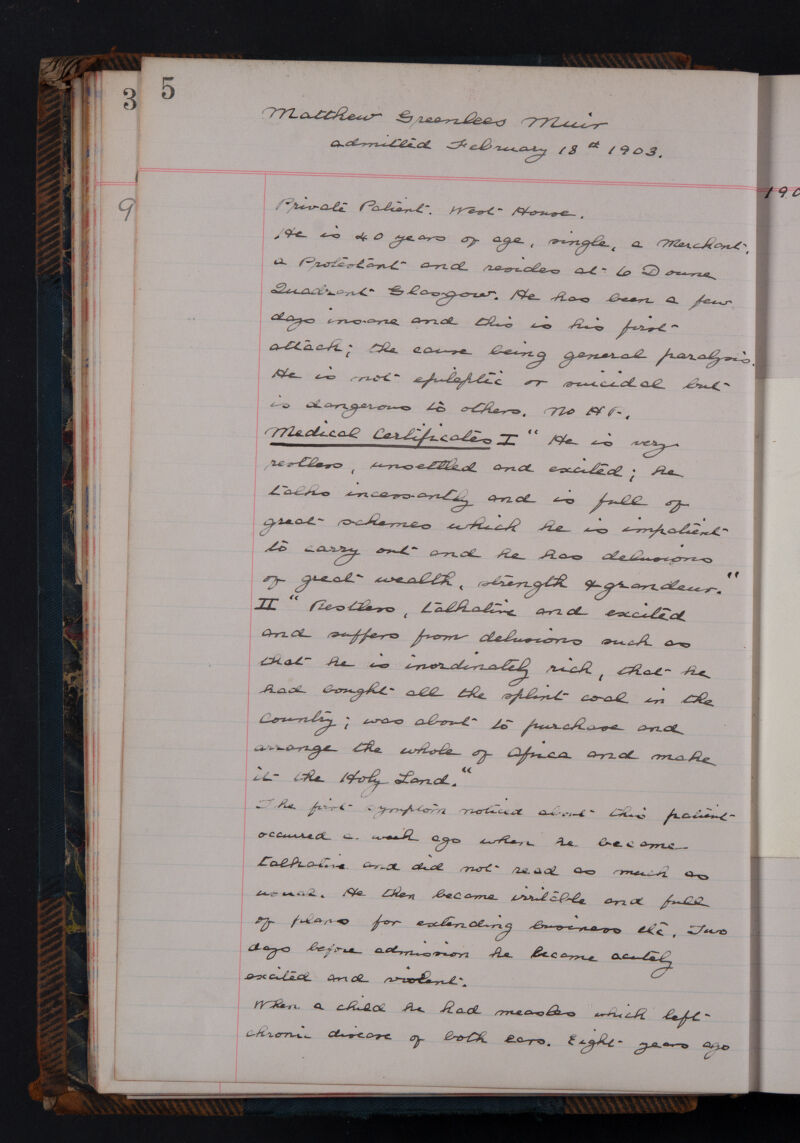 3
5
Matthew Greenlees Muir
admitted February 18th 1903.
190
9
Private Patient. West House.
He is 40 years of age, single, a Merchant,
a Protestant and resides at 6 Doune
Quadrant Glasgow. He has been a few
days insane and this is his first
attack; the cause being general paralysis.
He is not epileptic or suicidal but
is dangerous to others. No H.F.
Medical Certificates I "He is very
restless, unsettled and excited; he
talks incessantly and is full of
great schemes which he is impatient
to carry out and he has delusions
of great wealth, strength & grandeur."
II "Restless, talkative and excited
and suffers from delusions such as
that he is inordinately rich, that he
had bought all the splint coal in the
country; was about to purchase and
arrange the whole of Africa and make
it the Holy Land."
The first symptom noticed about this patient
occurred a week ago when he became
talkative and did not read as much as
usual. He then became irritable and full
of plans for extending business etc. Two
days before admission he became acutely
excited and violent.
When a child he had measles which left
chronic disease of both ears. Eight years ago